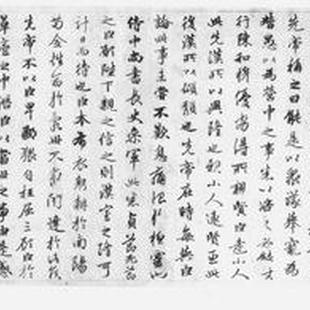 先帝稱之曰能是以眾議舉寵為
督愚以為營中之事悉以咨之必能
行陳和穆優劣得所親賢臣遠小人
此先漢所以興隆也親小人遠賢臣此
後漢所以傾頹也先帝在時每與臣
論此事未嘗不歎息痛恨於桓靈也
侍中尚書長史參軍此悉貞亮死節
之臣願陛下親之信之則漢室之隆可
計日而待也臣本布衣躬耕於南陽
苟全性命於亂世不求聞達於諸侯
先帝不以臣卑鄙猥自枉屈三顧臣於
草廬之中諮臣以當世之事由是感